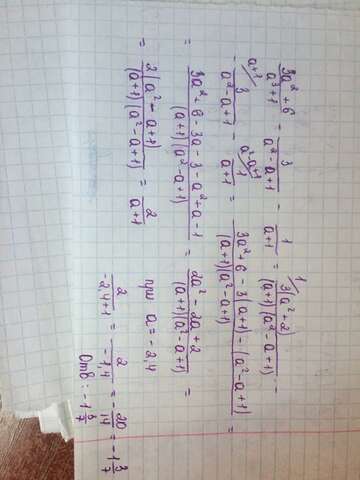 (3a²+6)/(a³+1) - 3/(a²-a+1) - 1/(a+1) = ¹/3(a²+2)/((a+1)(a²-a+1)) -
- ᵃ⁺¹/3/(a²-a+1) - ᵃ²⁻ᵃ⁺¹/1/(a+1) = (3a²+6-3(a+1)-(a²-a+1))/((a+1)(a²-a+1)) =
= (3a²+6-3a-3-a²+a-1)/((a+1)(a²-a+1)) = (2a²-2a+2)/((a+1)(a²-a+1)) =
= 2(a²-a+1)/((a+1)(a²-a+1)) = 2/(a+1)
при a=-2,4
2/(-2,4+1) = 2/(-1,4) = -20/14 = -1 3/7
Отв: -1 3/7